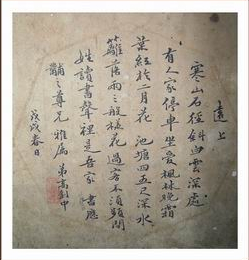 遠上
寒山石徑斜白雲深處
有人家停車坐愛楓林晚霜
葉紅於二月花 池塘四五尺深水
籬落兩三般樣花過客不須頻問
姓讀書聲裡是吾家 書應
之尊兄雅屬 弟高中
戊戌春日